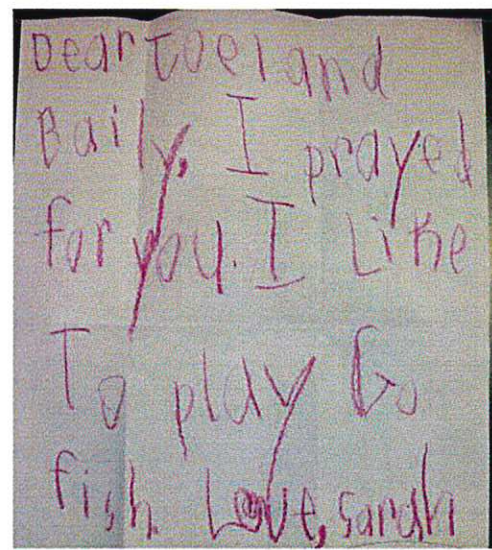 Dear Joel and
Baily, I prayed
for you. I Like
To play Go
fish Love, sarah